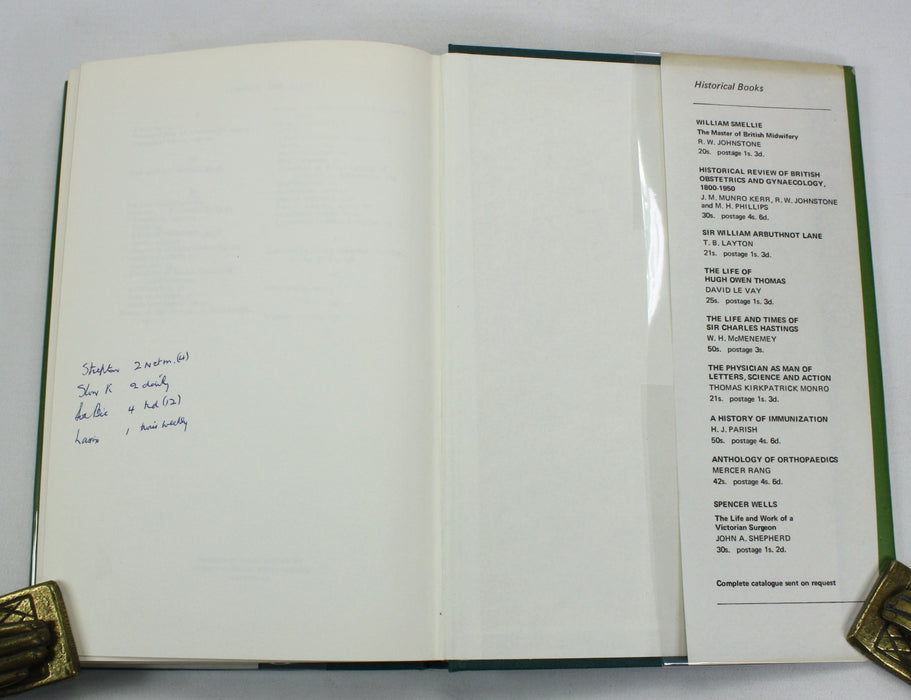 2
Slow K 2 daily
4 tid (12)
1 twice weekly
Historical Books
WILLIAM SMELLIE
The Master of British Midwifery
R. W. JOHNSTONE
20s. postage 1s. 3d.
HISTORICAL REVIEW OF BRITISH
OBSTETRICS AND GYNAECOLOGY,
1800-1950
J. M. MUNRO KERR, R. W. JOHNSTONE
and M. H. PHILLIPS
30s. postage 4s. 6d.
SIR WILLIAM ARBUTHNOT LANE
T. B. LAYTON
21s. postage 1s. 3d.
THE LIFE OF
HUGH OWEN THOMAS
DAVID LE VAY
25s. postage 1s. 3d.
THE LIFE AND TIMES OF
SIR CHARLES HASTINGS
W. H. McMENEMEY
50s. postage 3s.
THE PHYSICIAN AS MAN OF
LETTERS, SCIENCE AND ACTION
THOMAS KIRKPATRICK MONRO
21s. postage 1s. 3d.
A HISTORY OF IMMUNIZATION
H. J. PARISH
50s. postage 4s. 6d.
ANTHOLOGY OF ORTHOPAEDICS
MERCER RANG
42s. postage 4s. 6d.
SPENCER WELLS
The Life and Work of a
Victorian Surgeon
JOHN A. SHEPHERD
30s. postage 1s. 2d.
Complete catalogue sent on request